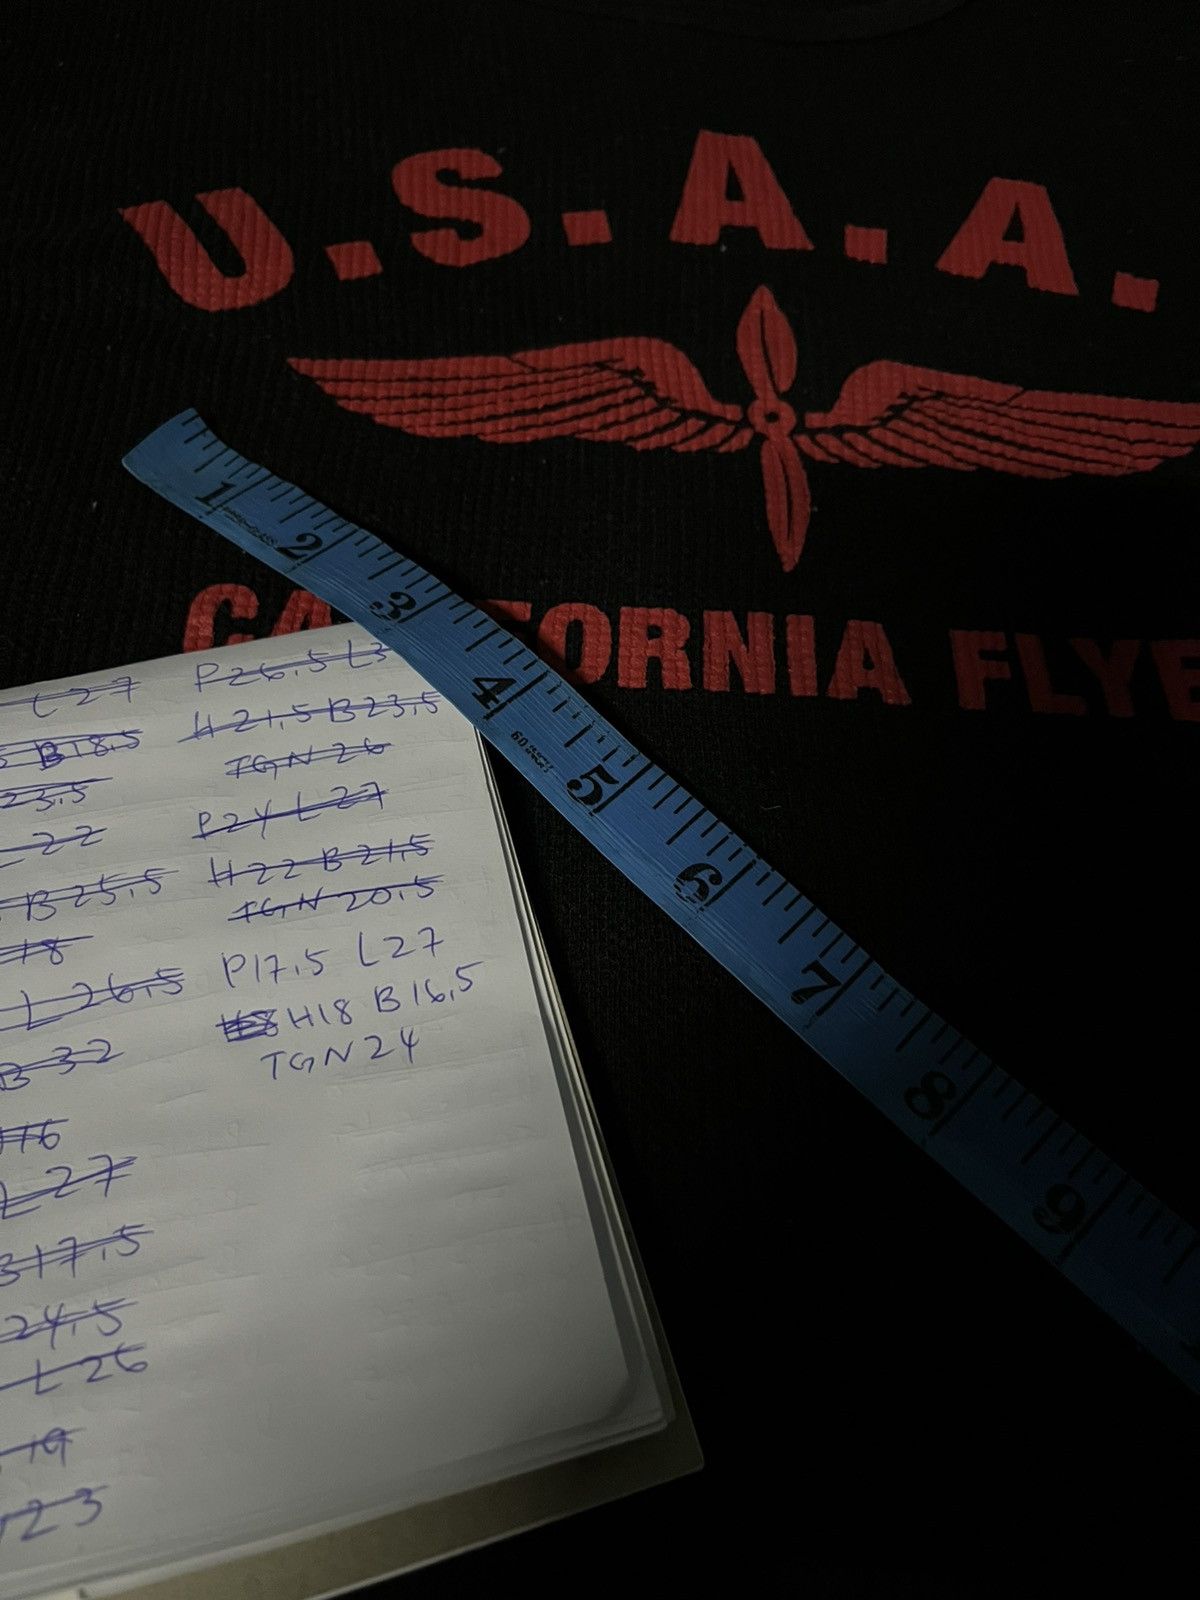 U.S.A.A.
CALIFORNIA FLYE
1 2 3 4 5 6 7 8 9
60
L27
B18,5
23,5
22
B25,5
18
L26,5
B32
16
L27
B17,5
24,5
L26
19
23
P26,5 L3
H21,5 B23,5
TGN 26
P24 L27
H22 B21,5
TGN 20,5
P17,5 L27
H18 B16,5
TGN 24